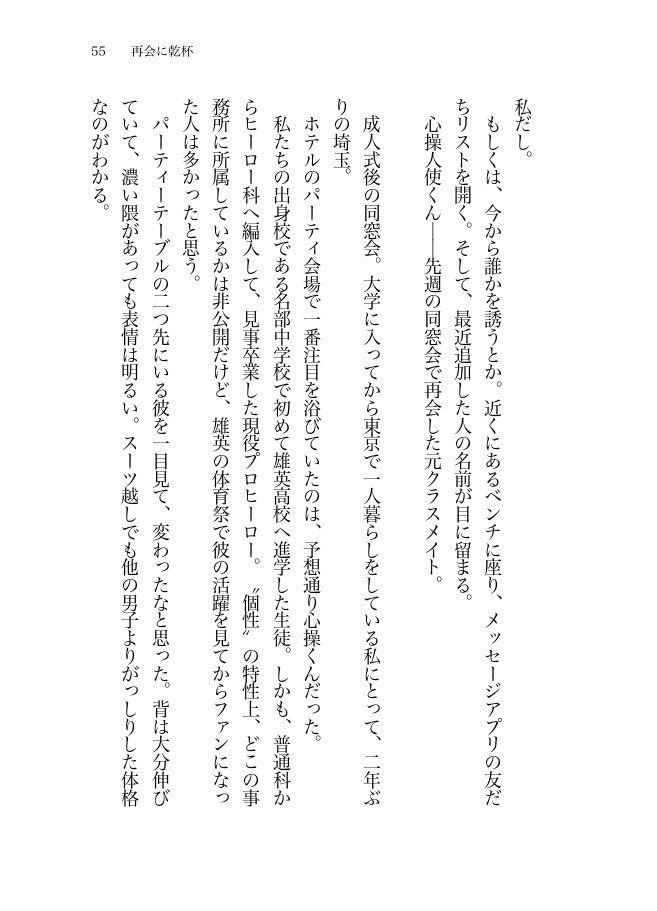 55　再会に乾杯
私だし。
　もしくは、今から誰かを誘うとか。近くにあるベンチに座り、メッセージアプリの友だ
ちリストを開く。そして、最近追加した人の名前が目に留まる。
　心操人使くん――先週の同窓会で再会した元クラスメイト。
　成人式後の同窓会。大学に入ってから東京で一人暮らしをしている私にとって、二年ぶ
りの埼玉。
　ホテルのパーティ会場で一番注目を浴びていたのは、予想通り心操くんだった。
　私たちの出身校である名部中学校で初めて雄英高校へ進学した生徒。しかも、普通科か
らヒーロー科へ編入して、見事卒業した現役プロヒーロー。〝個性〟の特性上、どこの事
務所に所属しているかは非公開だけど、雄英の体育祭で彼の活躍を見てからファンになっ
た人は多かったと思う。
　パーティーテーブルの二つ先にいる彼を一目見て、変わったなと思った。背は大分伸び
ていて、濃い隈があっても表情は明るい。スーツ越しでも他の男子よりがっしりした体格
なのがわかる。